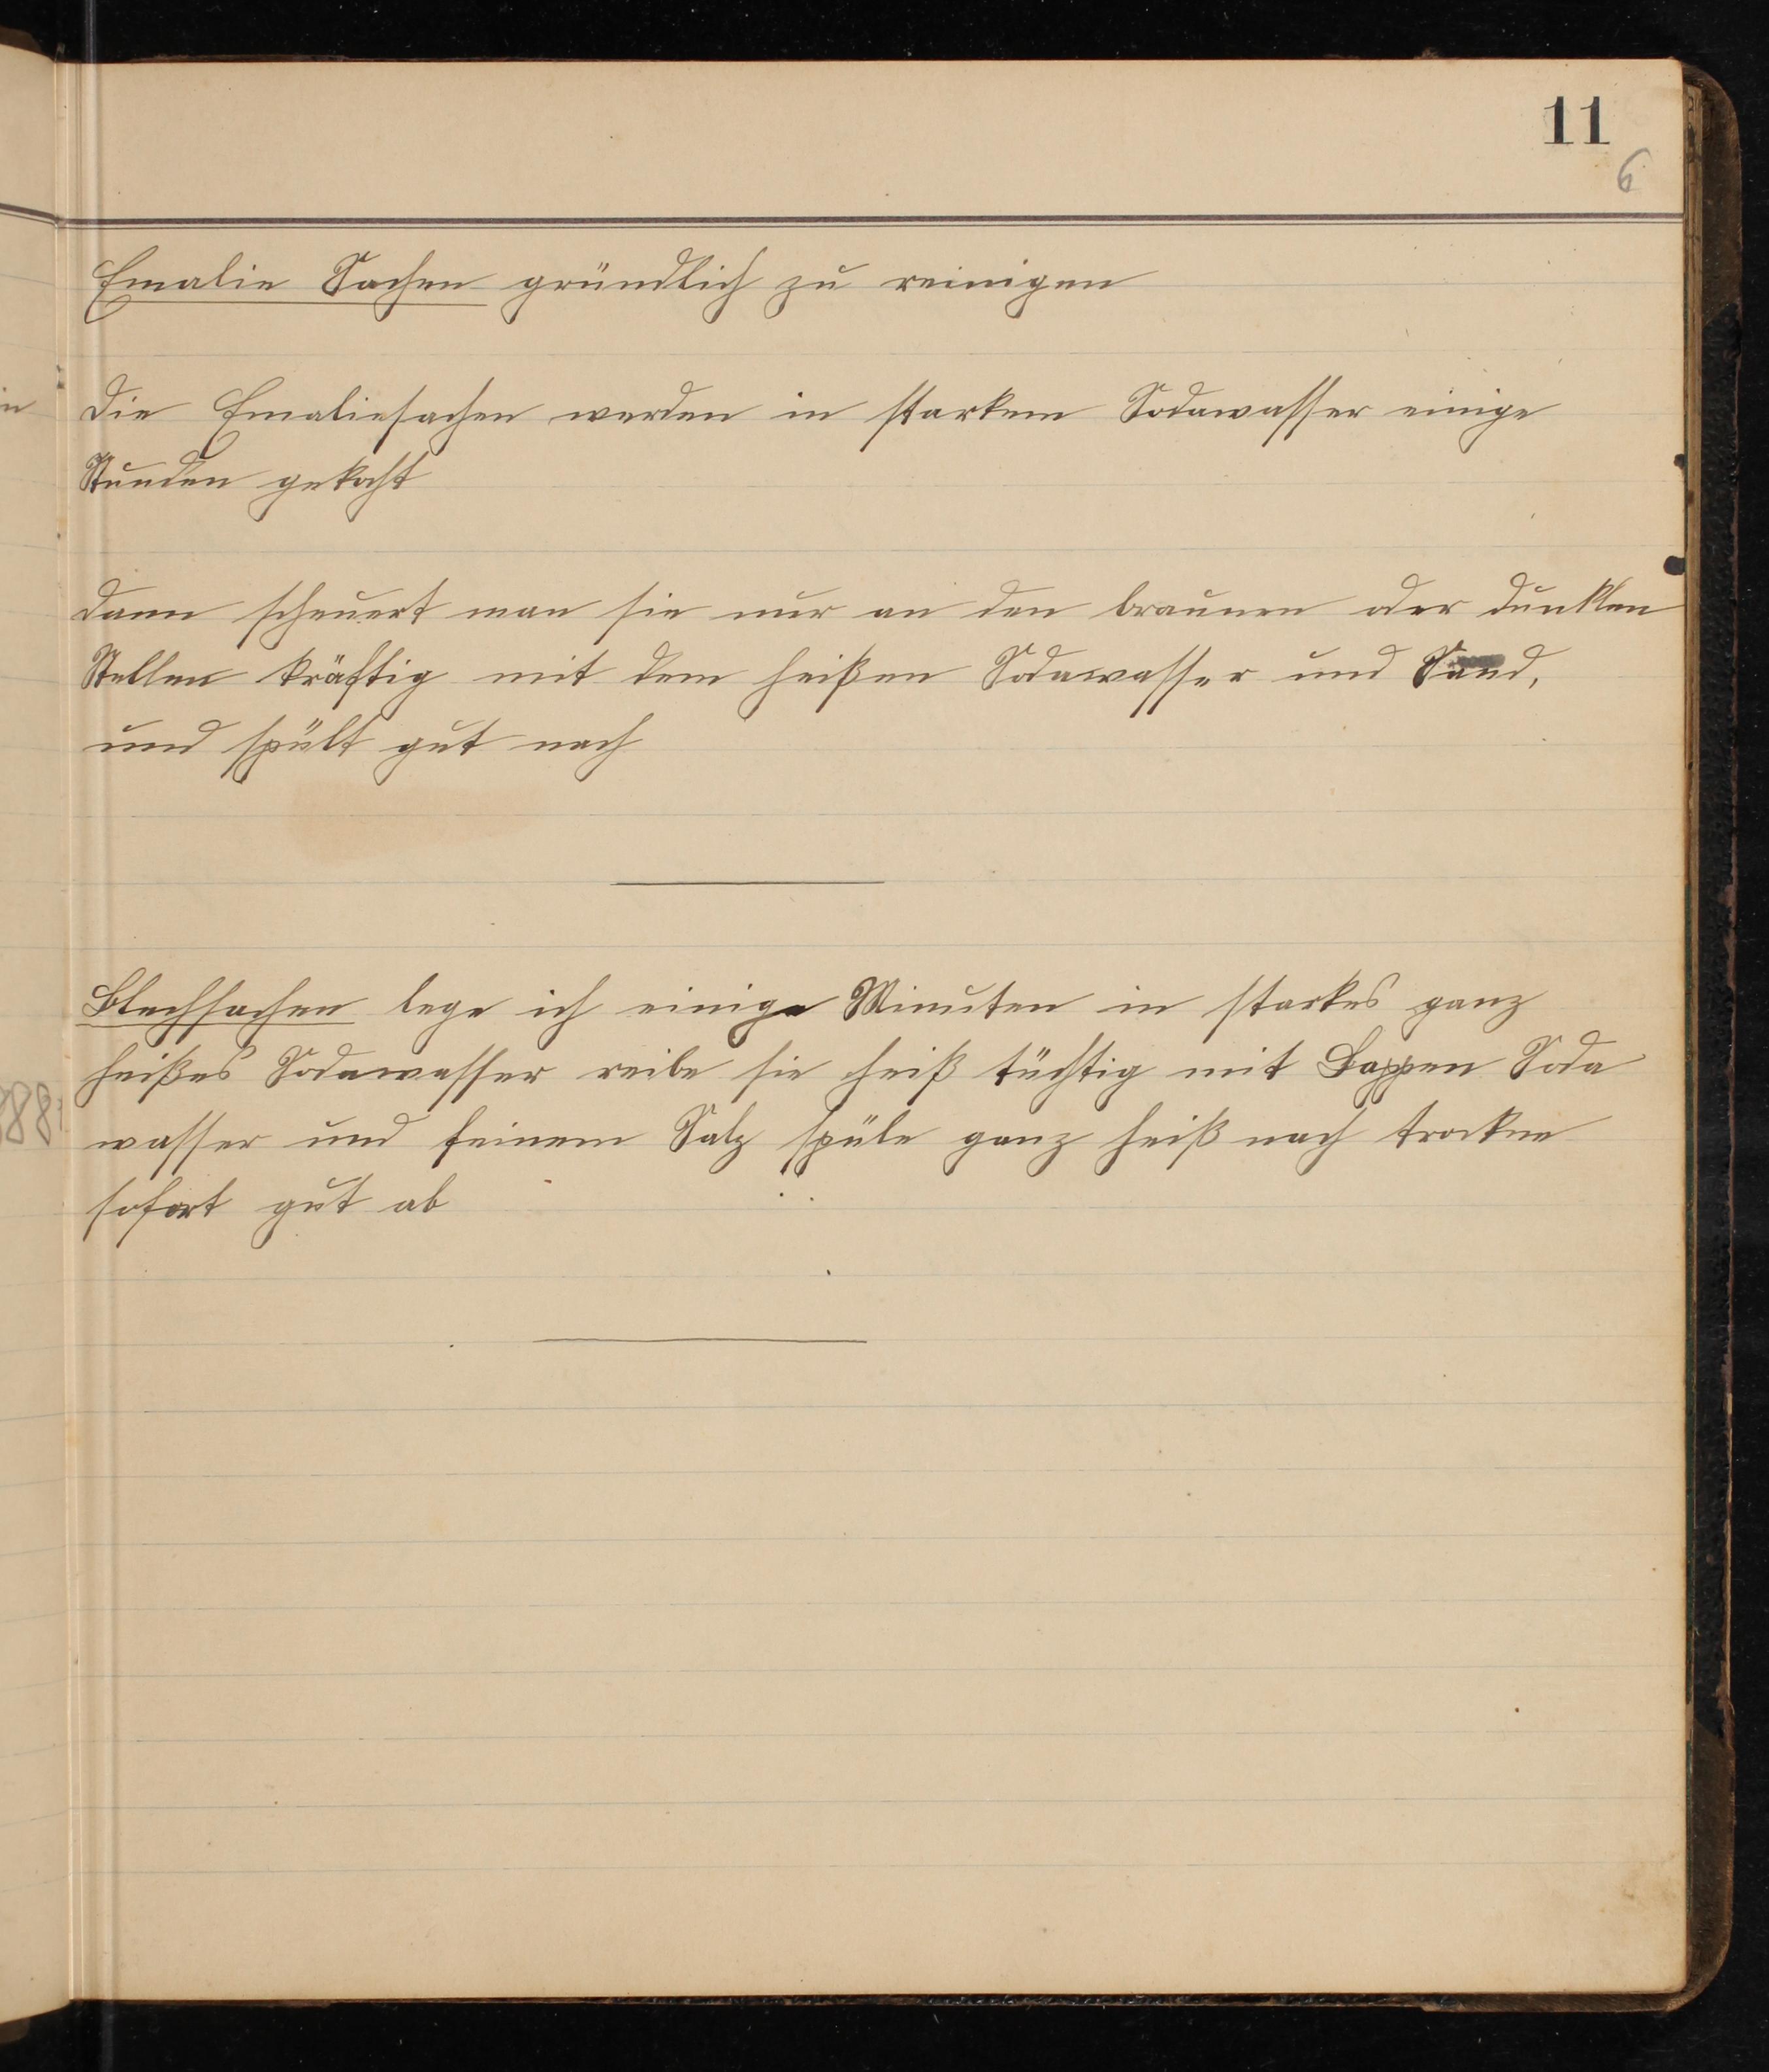 11
6
Emalie Sachen gründlich zu reinigen
Die Emaliesachen werden in starkem Sodawasser einige
Stunden gekocht
dann scheuert man sie nur an den braunen oder dunklen
Stellen kräftig mit dem heißen Sodawasser und Sand,
und spült gut nach
Blechsachen lege ich einige Minuten in starkes ganz
heißes Sodawasser reibe sie heiß tüchtig mit Lappen Soda
wasser und feinem Salz spüle ganz heiß nach trockne
sofort gut ab